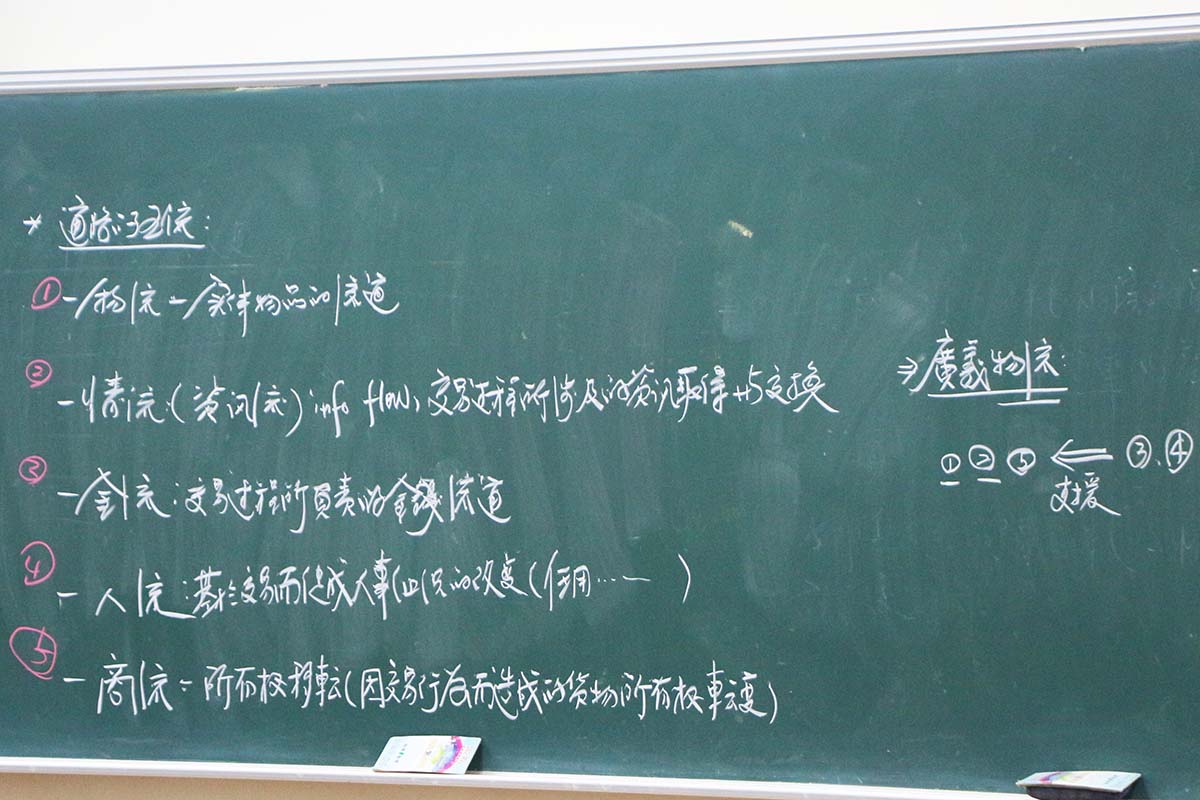 * 通路之五流：
① － 物流 － 實体物品的流通
② － 情流（資訊流）info flow，交易过程所涉及的資訊取得与交換
③ － 金流：交易过程所負責的金錢流通
④ － 人流：基於交易而促成人事的改变（信用……）
⑤ － 商流：所有权移転（因交易行为而造成的貨物所有权転变）
⇒ 廣義物流：
① ② ⑤ ⇐ ③、④
支援